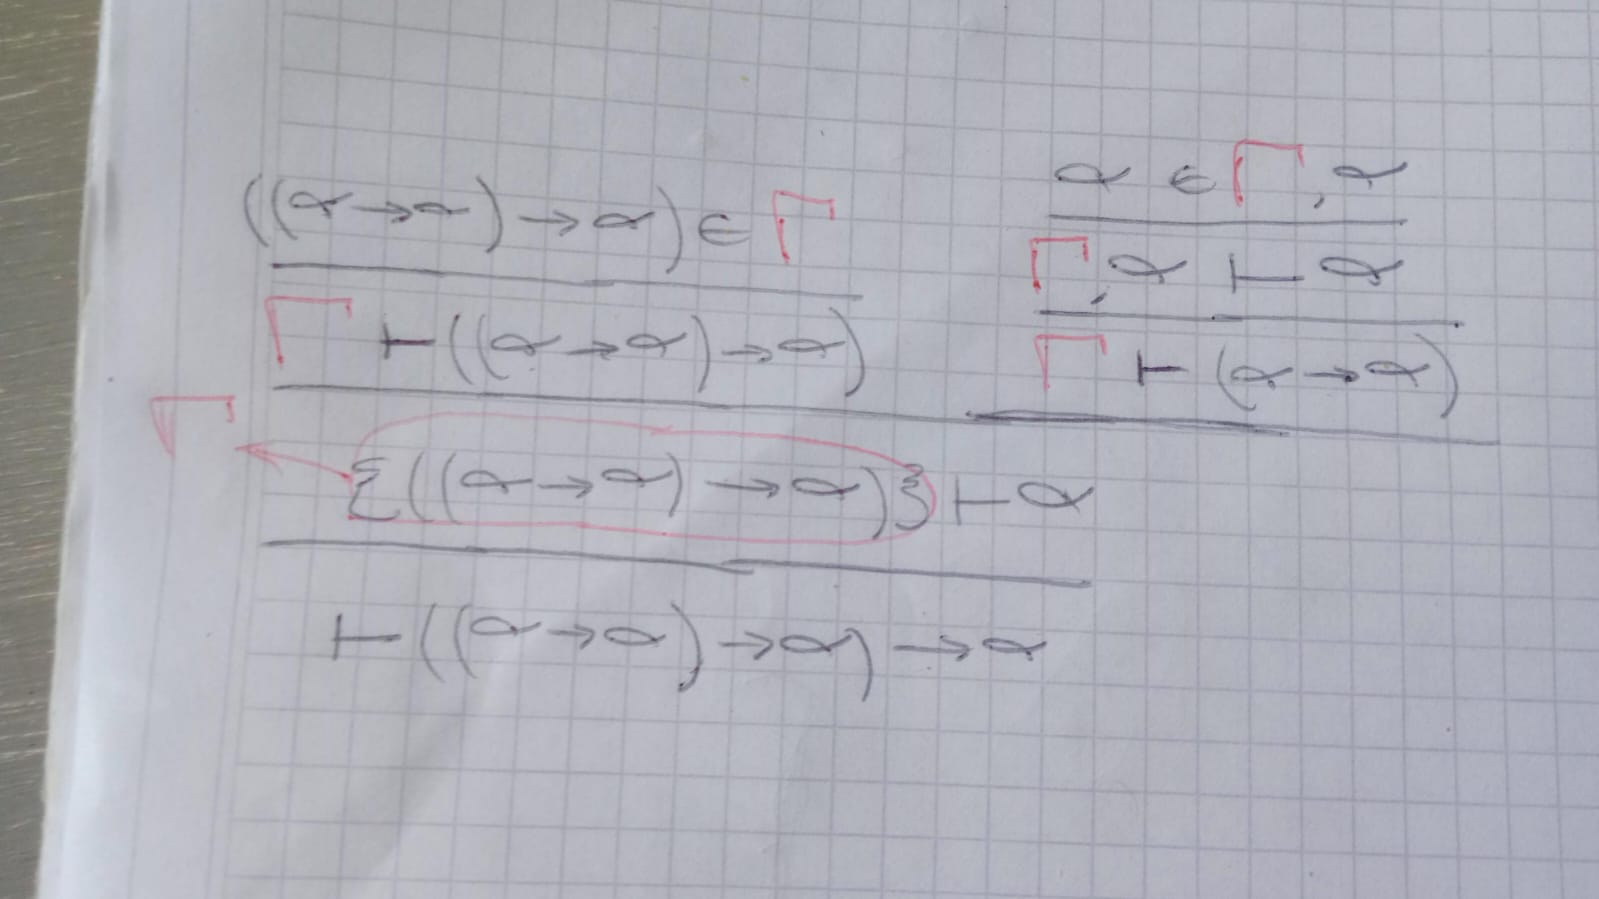 ((α→α)→α) ∈ Γ
α ∈ Γ, α
Γ ⊢ ((α→α)→α)
Γ, α ⊢ α
Γ ⊢ (α→α)
Γ
{((α→α)→α)} ⊢ α
⊢ ((α→α)→α)→α